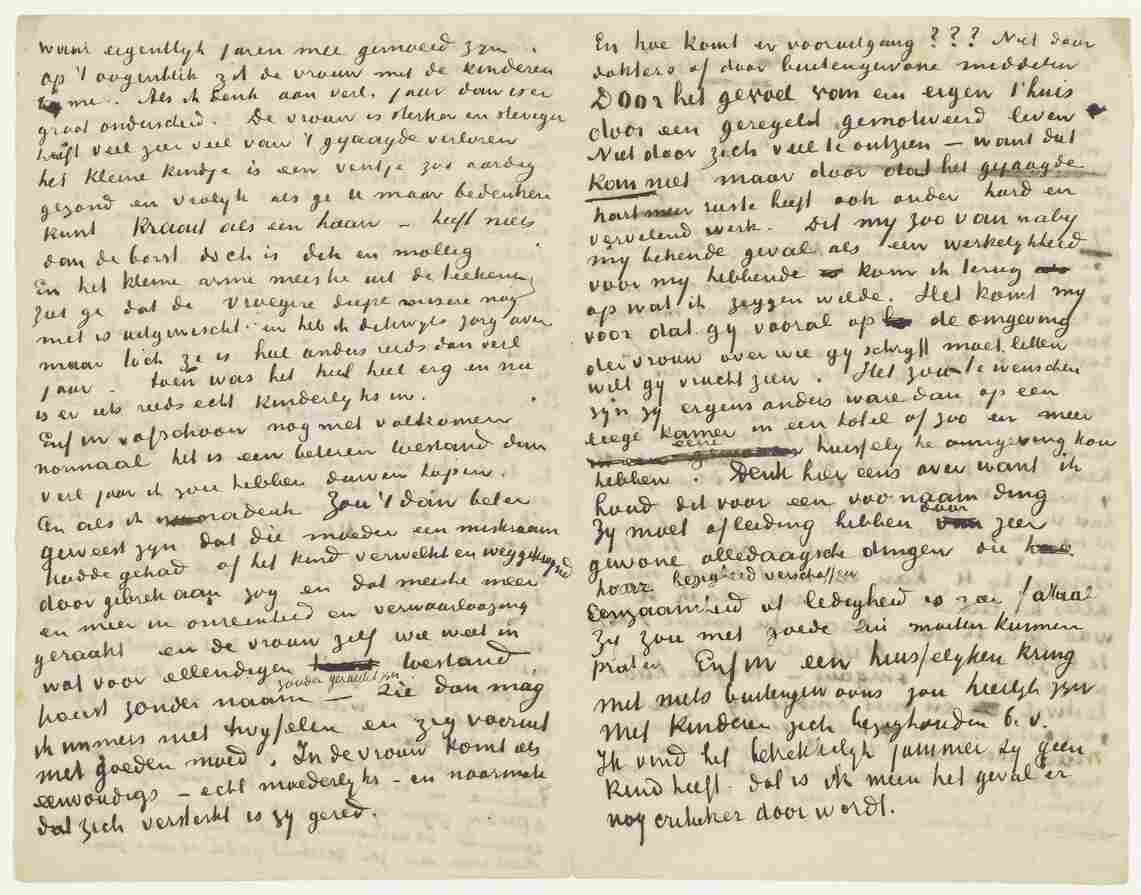 waar eigentlyk jaren mee gemoeid zyn.
op 't oogenblik zit de vrouw met de kinderen
by me. Als ik denk aan verl. jaar dan is er
groot onderscheid. De vrouw is sterker en steviger
heeft veel zeer veel van 't gejaagde verloren
het kleine kindje is een ventje zoo aardig
gezond en vrolyk als ge u maar bedenken
kunt kraait als een haan – heeft niets
dan de borst doch is dik en mollig
En het kleine arme meiske uit de teekening
ziet ge dat de vroegere diepe misere nog
niet is uitgewischt en heb ik dikwyls zorg over
maar toch ze is heel anders reeds dan verl
jaar. toen was het heel heel erg en nu
is er iets reeds echt kinderlyks in.
Enfin ofschoon nog niet volkomen
normaal het is een beteren toestand dan
verl jaar ik zou hebben durven hopen.
En als ik nadenk Zou 't dan beter
geweest zyn dat die moeder een miskraam
hadde gehad of het kind verwelkt en weggekwynd
door gebrek aan zog en dat meiske meer
en meer in onreinheid en verwaarloozing
geraakt en de vrouw zelf wie weet in
wat voor ellendigen toestand
zonder geraakt zyn
haast zonder naam – zie dan mag
ik immers niet twyfelen en zeg vooruit
met goeden moed. In de vrouw komt als
eenvoudigs – echt moederlyks – en naarmate
dat zich versterkt is zy gered.
En hoe komt er vooruitgang ??? Niet door
dokters of door buitengewone middelen
Door het gevoel van een eigen t'huis
door een geregeld gemotiveerd leven
Niet door zich veel te ontzien – want dat
kan niet maar door dat het gejaagde
hart meer ruste heeft ook onder hard en
vervelend werk. Dit my zoo van naby
my bekende geval als een werkelykheid
voor my hebbende kom ik terug
op wat ik zeggen wilde. Het komt my
voor dat gy vooral op de omgeving
der vrouw over wie gy schryft moet letten
wilt gy vrucht zien. Het zou te wenschen
zyn zy ergens anders ware dan op een
leege kamer in een hotel of zoo en meer
eene huiselyke omgeving kon
hebben. Denk hier eens over want ik
houd dit voor een voornaam ding
Zy moet afleiding hebben door zeer
gewone alledaagsche dingen die
haar bezigheid verschaffen
Eenzaamheid et ledigheid is zoo fataal
Zy zou met goede lui moeten kunnen
praten Enfin een huiselyken kring
met niets buitengewoons zou heerlyk zyn
Met kinderen zich bezighouden b.v.
Ik vind het betrekkelyk jammer zy geen
kind heeft. dat is ik meen het geval er
nog critieker door wordt.